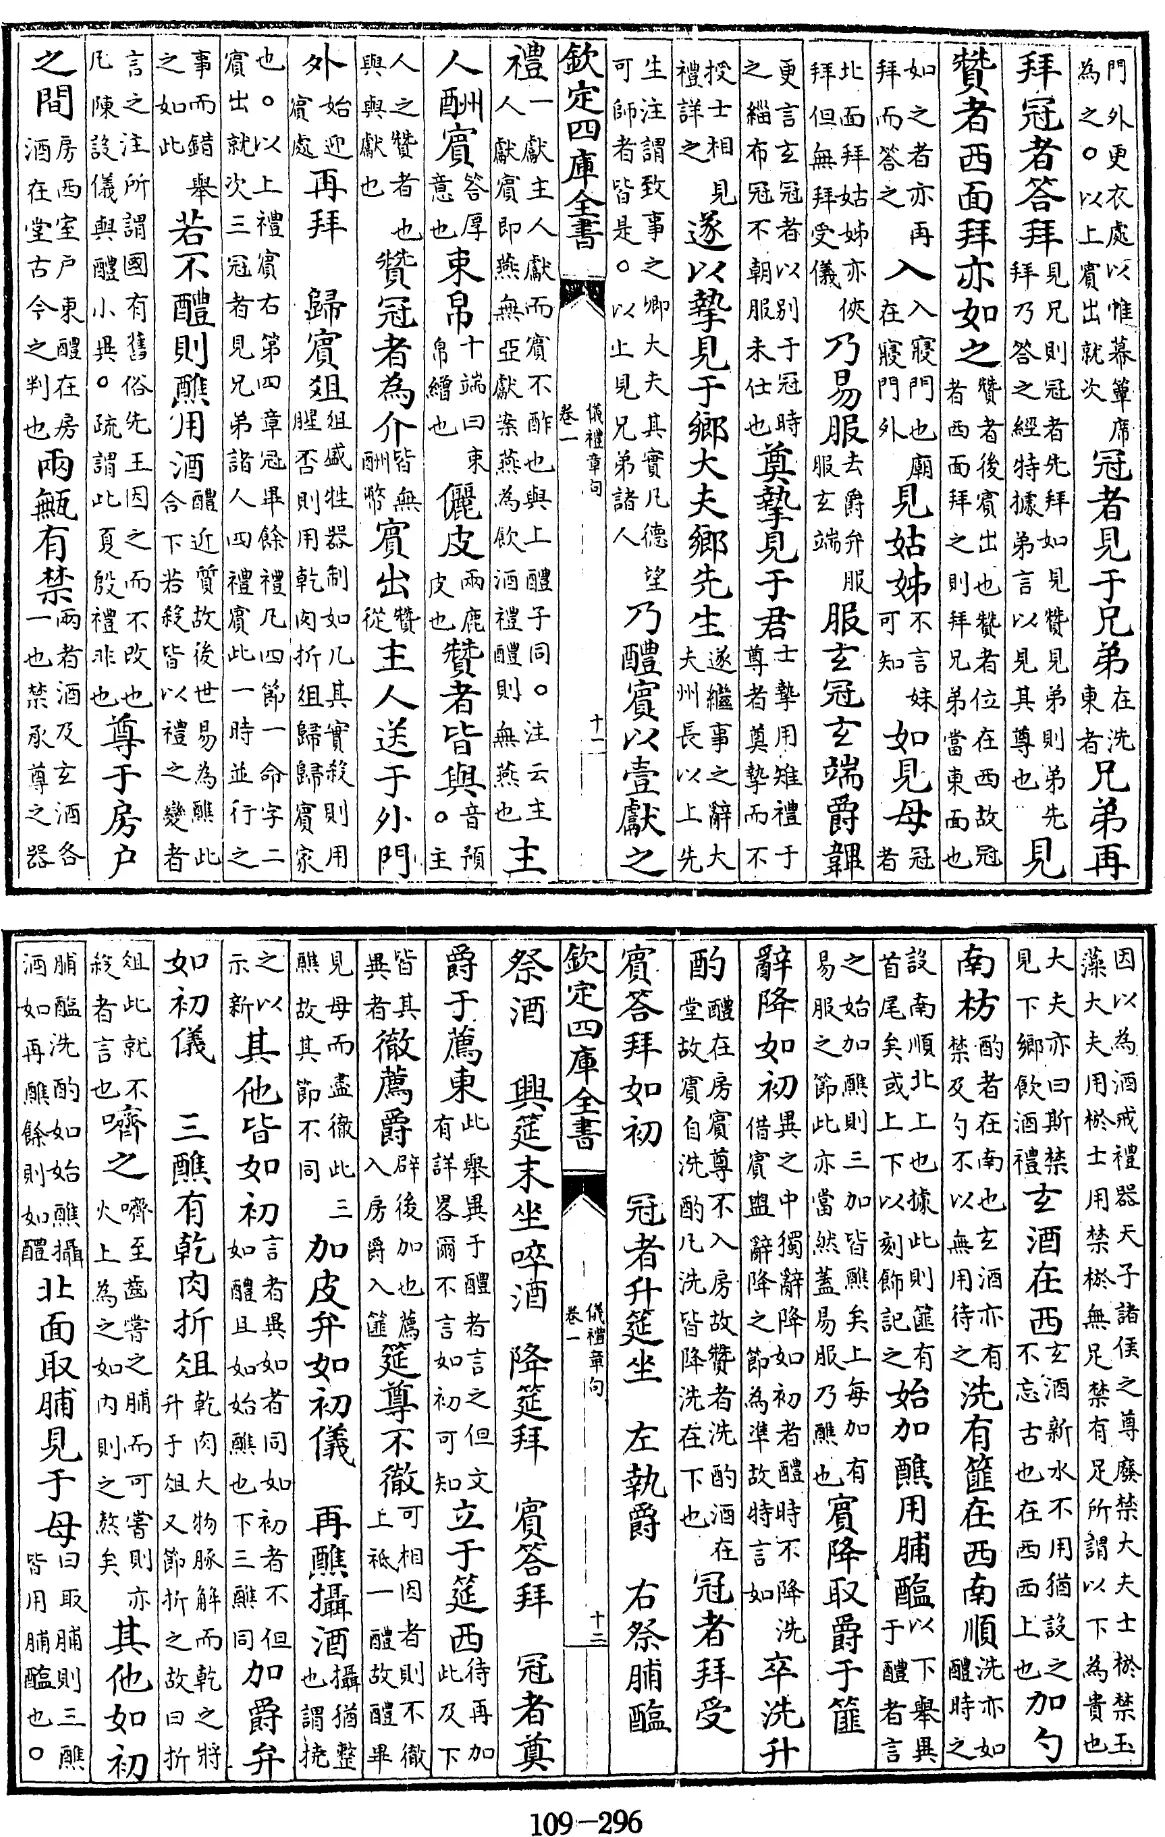 門外更衣處以惟幕簟席為之○以上賓出就次冠者見于兄弟在洗東者兄弟再
拜冠者答拜見兄則冠者先拜如見贊見弟則弟先拜乃答之經特據弟言以見其尊也見
贊者西面拜亦如之贊者後賓出也贊者位在西故冠者西面拜之則拜兄弟當東面也
如之者亦再拜而答之入入寢門也廟在寢門外見姑姊不言妹可知如見母冠者
北面拜姑姊亦俠拜但無拜受儀乃易服去爵弁服服玄端服玄冠玄端爵韠
更言玄冠者以别于冠時之緇布冠不朝服未仕也奠摯見于君士摯用雉禮于尊者奠摯而不
授士相見禮詳之遂以摯見于鄉大夫鄉先生遂繼事之辭大夫州長以上先
生注謂致事之卿大夫其實凡德望可師者皆是○以上見兄弟諸人乃醴賓以壹獻之
欽定四庫全書 儀禮章句 卷一 十一
禮一獻主人獻而賓不酢也與上醴子同○注云主人獻賓即燕無亞獻案燕為飲酒禮醴則無燕也主
人酬賓答厚意也束帛十端曰束帛繒也儷皮兩鹿皮也贊者皆與音預○主
人之贊者也與獻也贊冠者為介皆無酬幣賓出贊從主人送于外門
外始迎賓處再拜 歸賓俎俎盛牲器制如几其實殺則用腥否則用乾肉折俎歸歸賓家
也○以上禮賓右第四章冠畢餘禮凡四節一命字二賓出就次三冠者見兄弟諸人四禮賓此一時並行之
事而錯舉之如此若不醴則醮用酒醴近質故後世易為醮此合下若殺皆以禮之變者
言之注所謂國有舊俗先王因之而不改也凡陳設儀與醴小異○疏謂此夏殷禮非也尊于房户
之間房西室户東醴在房酒在堂古今之判也兩甒有禁兩者酒及玄酒各一也禁承尊之器
因以為酒戒禮器天子諸侯之尊廢禁大夫士棜禁玉藻大夫用棜士用禁棜無足禁有足所謂以下為貴也
大夫亦曰斯禁見下鄉飲酒禮玄酒在西玄酒新水不用猶設之不忘古也在西西上也加勺
南枋酌者在南也玄酒亦有禁及勺不以無用待之洗有篚在西南順洗亦如醴時之
設南順北上也據此則篚有首尾矣或上下以刻飾記之始加醮用脯醢以下舉異于醴者言
之始加醮則三加皆醮矣上每加有易服之節此亦當然蓋易服乃醮也賓降取爵于篚
辭降如初異之中獨辭降如初者醴時不降洗借賓盥辭降之節為準故特言如卒洗升
酌醴在房賓尊不入房故贊者洗酌酒在堂故賓自洗酌凡洗皆降洗在下也冠者拜受
賓答拜如初 冠者升筵坐 左執爵 右祭脯醢
欽定四庫全書 儀禮章句 卷一 十二
祭酒 興筵末坐啐酒 降筵拜 賓答拜 冠者奠
爵于薦東此舉異于醴者言之但文有詳畧爾不言如初可知立于筵西待再加此及下
皆其異者徹薦爵辟後加也薦入房爵入篚筵尊不徹可相因者則不徹上祗一醴故醴畢
見母而盡徹此三醮故其節不同加皮弁如初儀 再醮攝酒攝猶整也謂撓
之以示新其他皆如初言者異如者同如初者不但如醴且如始醮也下三醮同加爵弁
如初儀 三醮有乾肉折俎乾肉大物豚解而乾之將升于俎又節折之故曰折
俎此就不殺者言也嚌之嚌至齒嘗之脯而可嘗則亦火上為之如内則之熬矣其他如初
脯醢洗酌如始醮攝酒如再醮餘則如醴北面取脯見于母曰取脯則三醮皆用脯醢也○
109-296